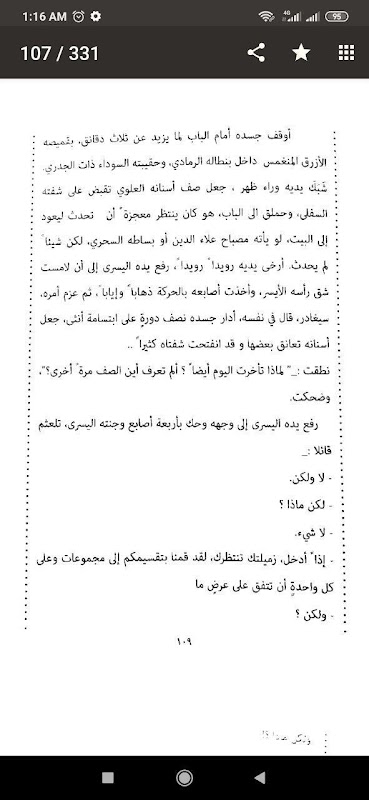 1:16 AM
4G
95
107 / 331
أوقف جسده أمام الباب لما يزيد عن ثلاث دقائق، بقميصه
الأزرق المنغمس داخل بنطاله الرمادي، وحقيبته السوداء ذات الجدري.
شَبَكَ يديه وراء ظهر ، جعل صف أسنانه العلوي تقبض على شفته
السفلى، وحملق الى الباب، هو كان ينتظر معجزةً أن تحدث ليعود
إلى البيت، لو يأته مصباح علاء الدين أو بساطه السحري، لكن شيئاً
لم يحدث. أرخى يديه رويداً رويداً، رفع يده اليسرى إلى أن لامست
شق رأسه الأيسر، وأخذت أصابعه بالحركة ذهاباً وإياباً، ثم عزم أمره،
سيغادر، قال في نفسه، أدار جسده نصف دورةٍ على ابتسامة أنثى، جعل
أسنانه تعانق بعضها و قد انفتحت شفتاه كثيراً ..
نطقت :_" لماذا تأخرت اليوم أيضاً ؟ ألم تعرف أين الصف مرةً أخرى؟"،
وضحكت.
رفع يده اليسرى إلى وجهه وحك بأربعة أصابع وجنته اليسرى، تلعثم
قائلا :_
- لا ولكن.
- لكن ماذا ؟
- لا شيء.
- إذاً أدخل، زميلتك تنتظرك، لقد قمنا بتقسيمكم إلى مجموعات وعلى
كل واحدةٍ أن تتفق على عرضٍ ما
- ولكن ؟
١٠٩
ولكن ماذا ؟!